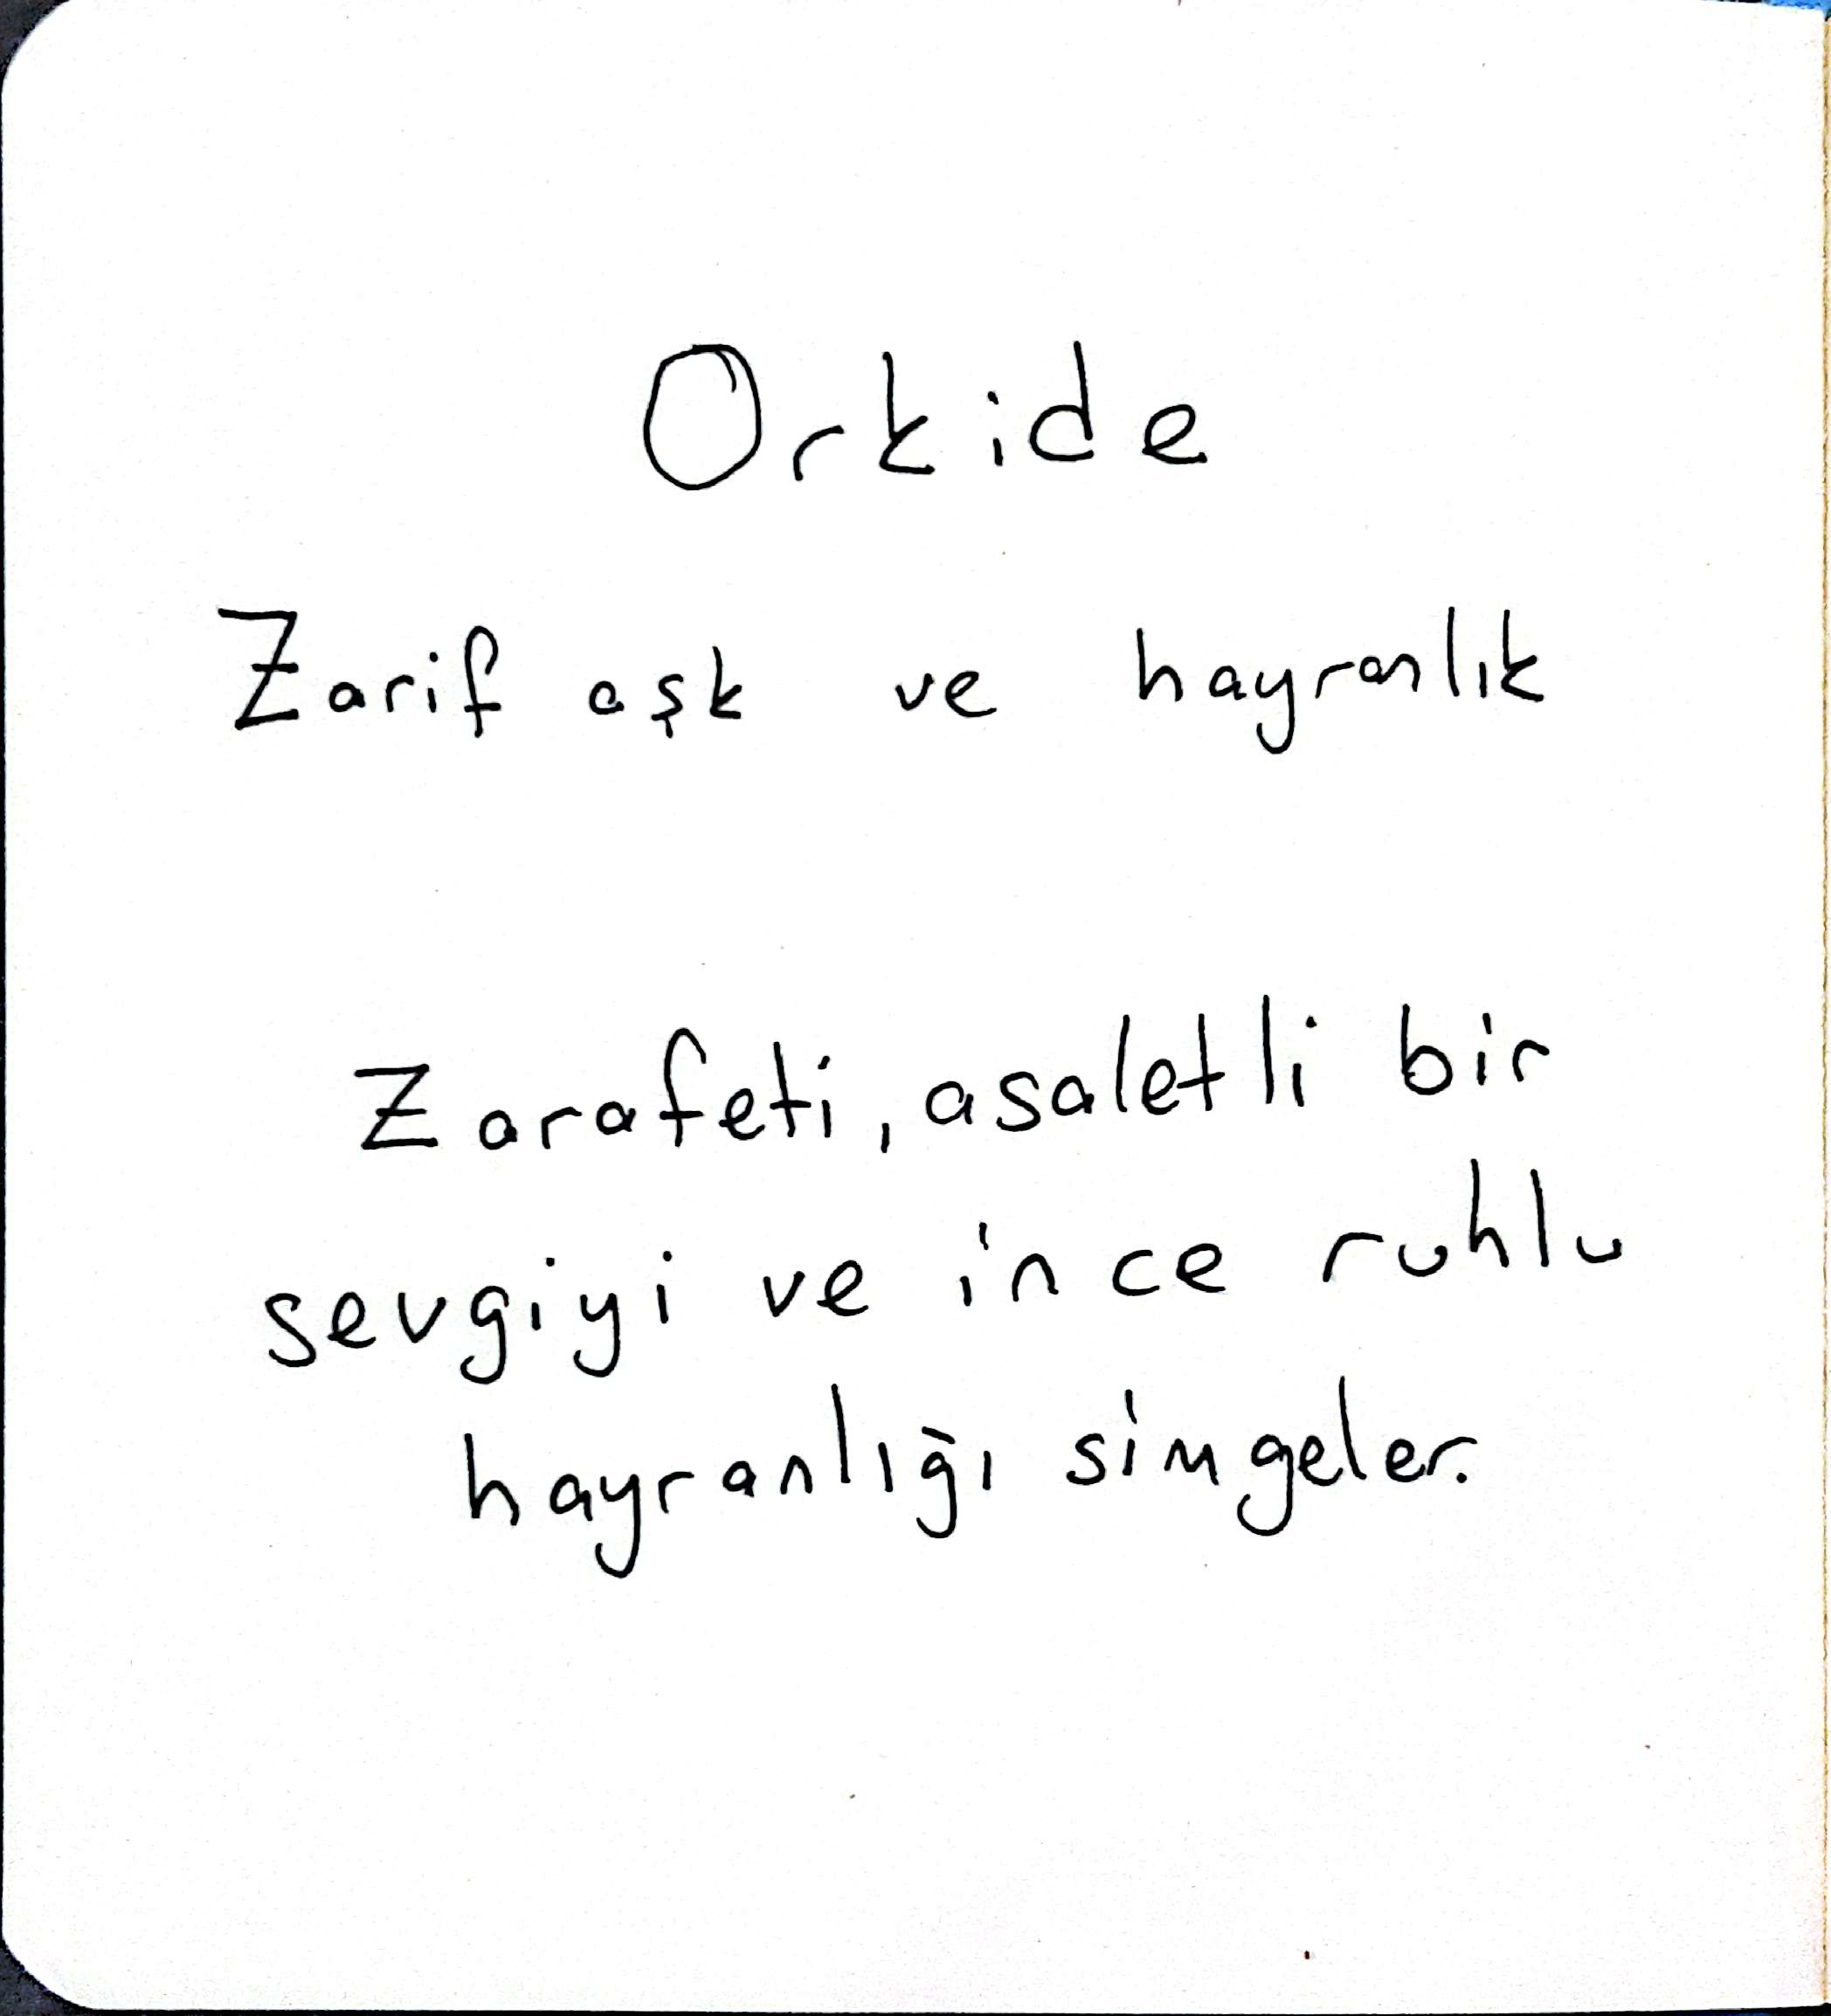 Orkide
Zarif aşk ve hayranlık
Zarafeti, asaletli bir
sevgiyi ve ince ruhlu
hayranlığı simgeler.